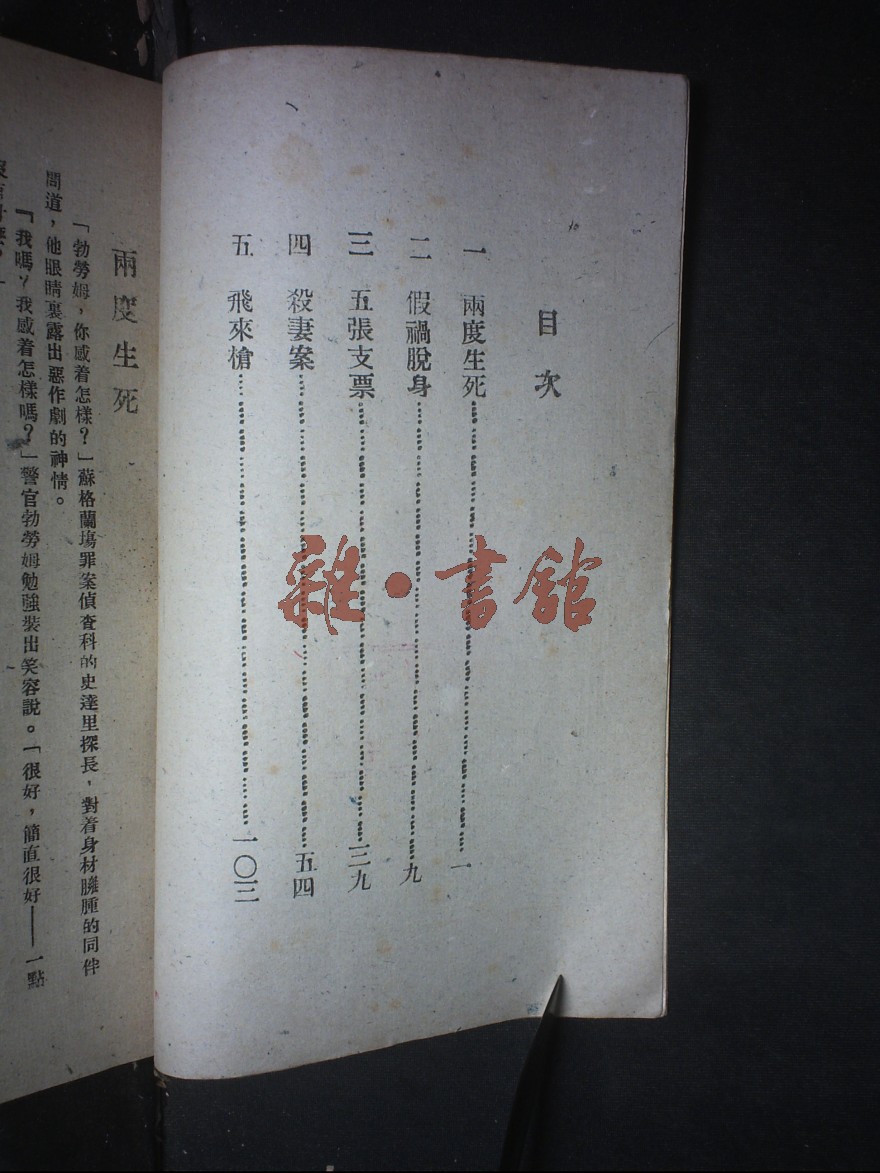 目次
一 兩度生死 一
二 假禍脫身 九
三 五張支票 三九
四 殺妻案 五四
五 飛來槍 一〇三
雜·書館
兩度生死
「勃勞姆，你感着怎樣？」蘇格蘭塲罪案偵查科的史達里探長，對着身材臃腫的同伴
問道，他眼睛裏露出惡作劇的神情。
「我嗎？我感着怎樣嗎？」警官勃勞姆勉強裝出笑容說。「很好，簡直很好——一點